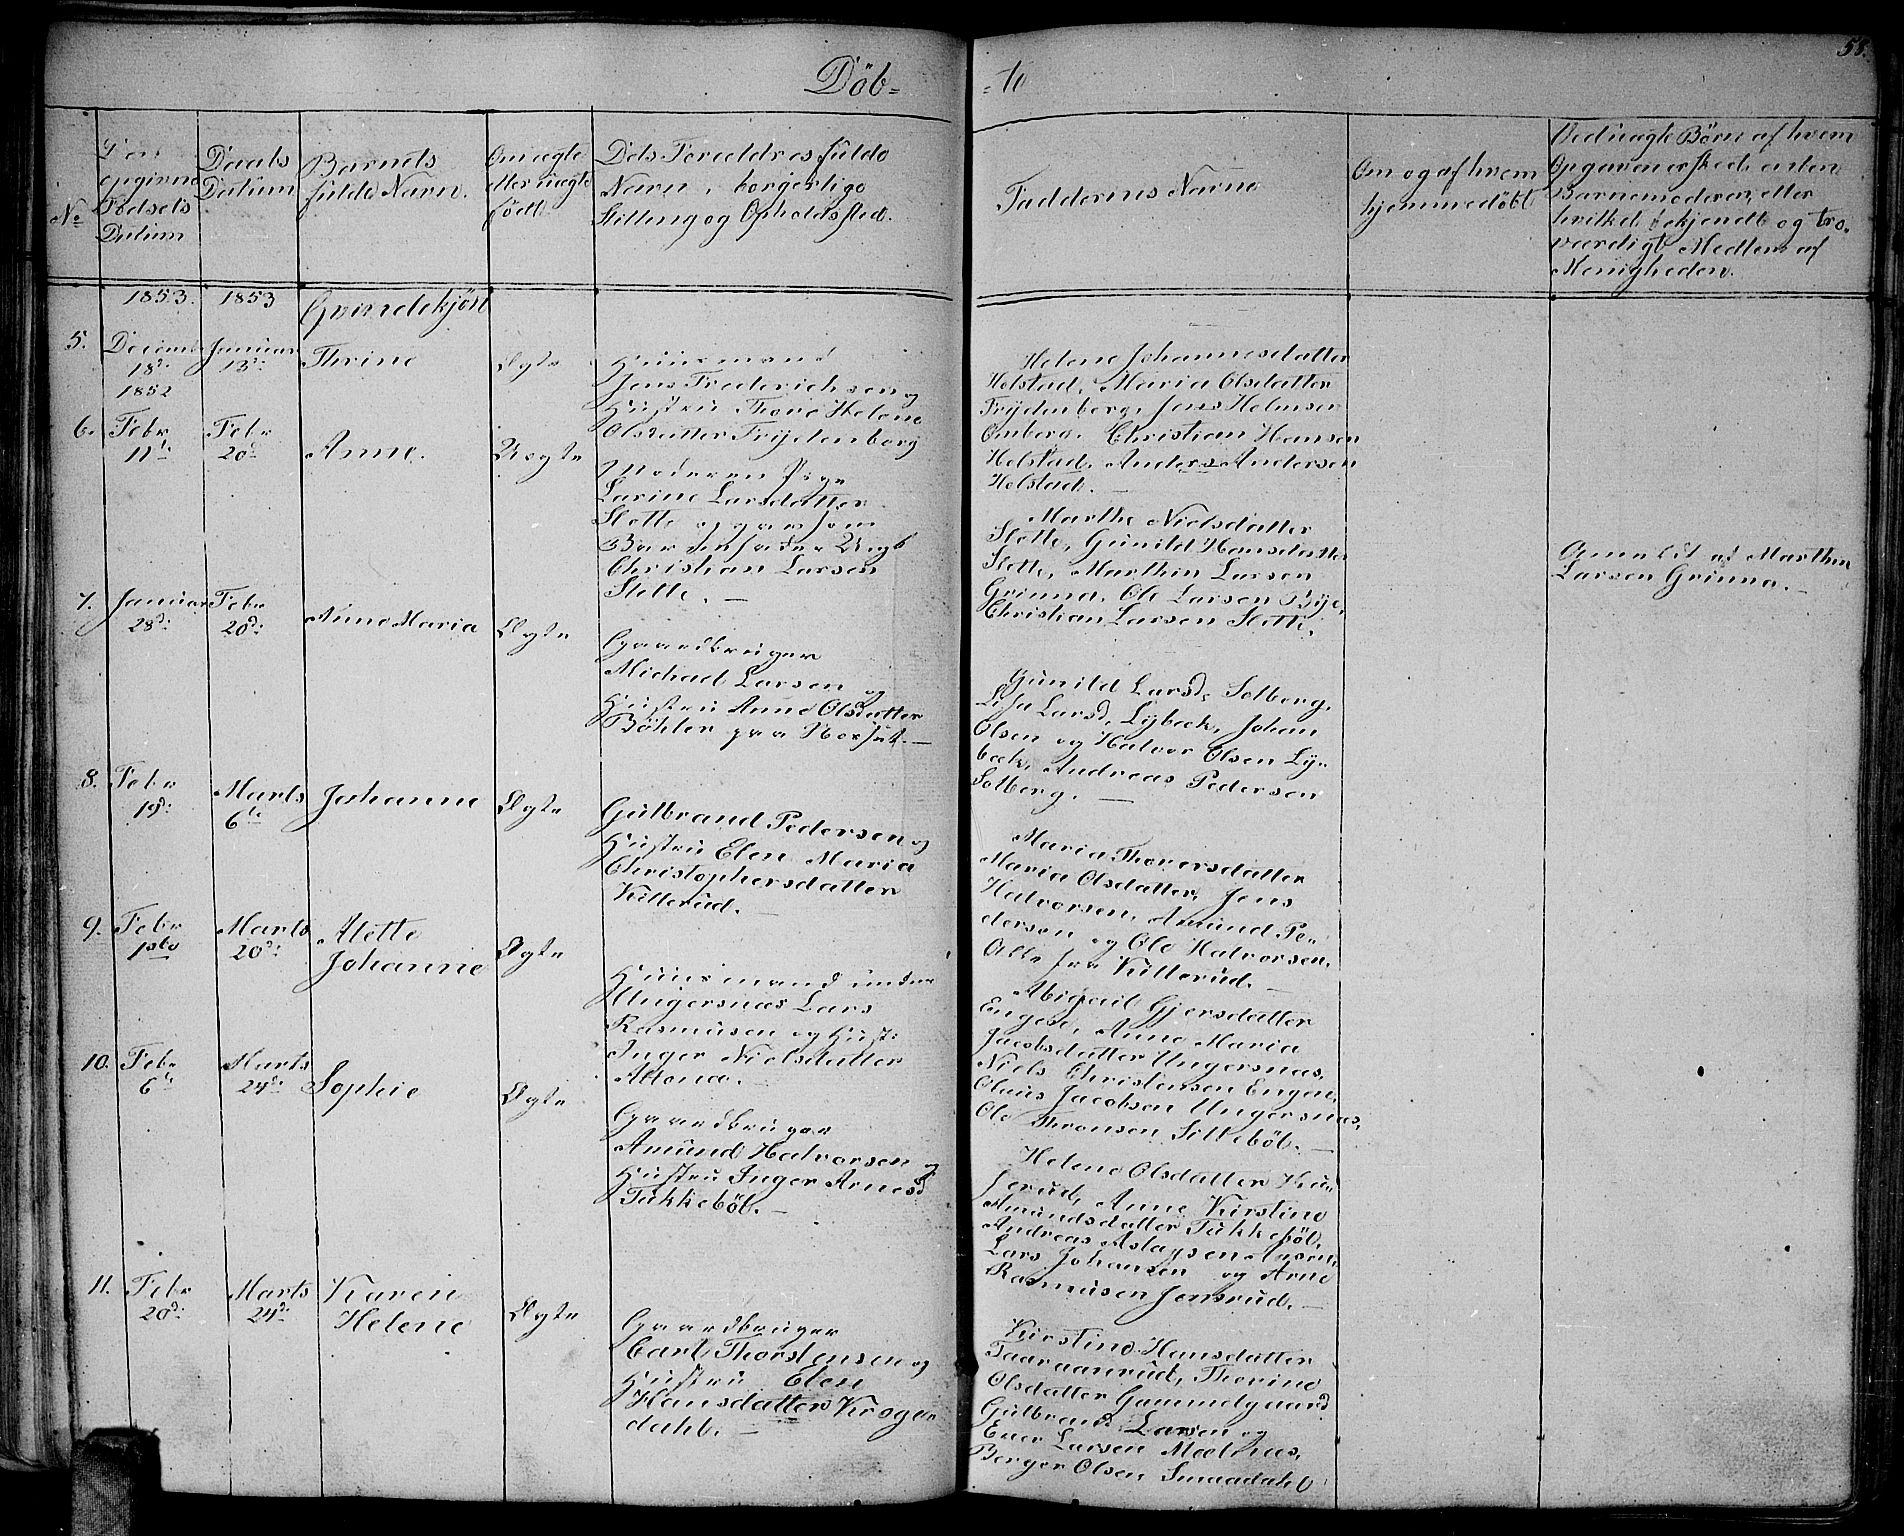 Døb-
-te
58.
No
Den
opgivne
Fødsels
Datum
Daabs
Datum
Barnets
fulde Navn.
Om ægte
eller uægte
født
Dets Forældres fulde
Navn, borgerlige
Stilling og Opholdssted.
Faddernes Navne
Om og af hvem
hjemmedøbt
Ved uægte Børn af hvem
Opgaven er skeed, enten
Barnemoderen, eller
hvilket bekjendt og tro-
værdigt Medlem af
Menigheden.
1853.
1853
Qvindekjøn
5.
Decemb
18d:
1852
Januar
13d:
Thrine
Ægte
Huusmand
Jens Frederichsen og
Hustru Thore Helene
Olsdatter Frydenberg
Helene Johannesdatter
Helstad, Maria Olsdatter
Frydenberg, Jens Helmsen
Omberg. Christian Hansen
Helstad. Anders Andersen
Helstad. —
6.
Febr
11te
Febr
20d:
Anne.
Uegte
Moderen Pige
Larine Larsdatter
Slette og som
Barnefader Ungk
Christian Larsen
Slette. —
Marthe Nielsdatter
Slette, Gunild Hansdatter
Slette, Marthin Larsen
Grinna, Ole Larsen Bye,
Christian Larsen Slette.
Anmeldt af Marthin
Larsen Grinna. —
7.
Januar
28d:
Febr
20d:
Anne Maria
Ægte
Gaardbruger
Michael Larsen og
Hustru Anne Olsdatter
Böhler paa —
Gunild Larsd. Solberg,
Lisa Larsd. Lybæk, Johan
Olsen og Halvor Olsen Ly-
bæk, Andreas Pedersen
Solberg. —
8.
Febr
19d:
Marts
6te
Johanne
Ægte
Gulbrand Pedersen og
Hustru Elen Maria
Christophersdatter
Killerud. —
Maria Thorersdatter
Maria Olsdatter, Jens
Halvorsen, Amund Pe-
dersen og Ole Halvorsen,
Alle fra Killerud. —
9.
Febr
1ste
Marts
20d:
Alette
Johanne
Ægte
Huusmand under
Ungersnæs Lars
Rasmusen og Hust:
Inger Nielsdatter
Altona. —
Abigail Gjersdatter
Engen, Anne Maria
Jacobsdatter Ungersnæs,
Niels Christensen Engen,
Olaus Jacobsen Ungersnæs,
Ole Thronsen Sikkebøl. —
10.
Febr
6te
Marts
24d:
Sophie
Ægte
Gaardbruger
Amund Halvorsen og
Hustru Inger Arnesd
Tukkebøl. —
Helene Olsdatter
Anne Kirstine
Amundsdatter Tukkebøl,
Andreas Aslagsen Aasen,
Lars Johansen og Arne
Rasmusen Jonsrud. —
11.
Febr
20d:
Marts
24d:
Karen
Helene
Ægte
Gaardbruger
Carl Thorstensen og
Hustru Elen
Hansdatter Kroger-
dahl. —
Kirstine Hansdatter
Taaraanrud, Thorine
Olsdatter Gammelgaard
Gulbrand Larsen og
Ener Larsen Mælnæs,
Berger Olsen Smaadahl